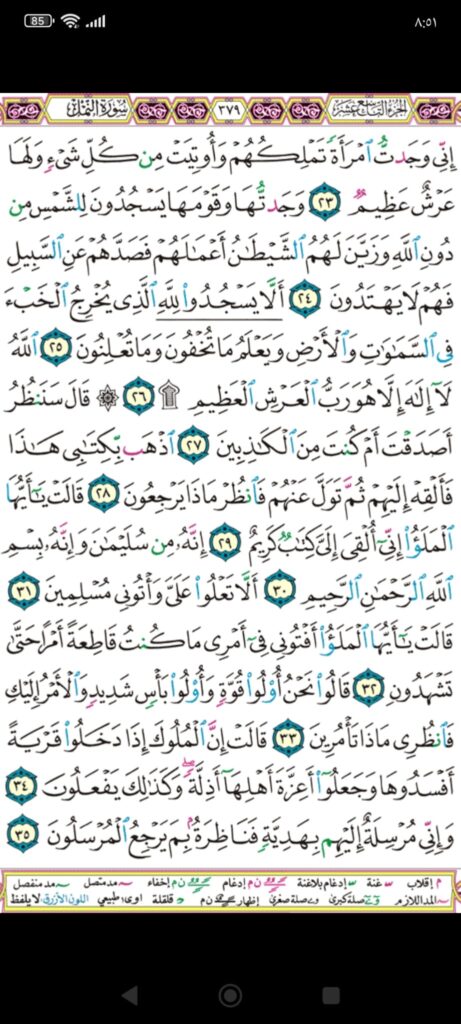 85
٨:٥١
الجزء التاسع عشر ٣٧٩ سورة النمل
إِنِّي وَجَدتُّ ٱمۡرَأَةٗ تَمۡلِكُهُمۡ وَأُوتِيَتۡ مِن كُلِّ شَيۡءٖ وَلَهَا
عَرۡشٌ عَظِيمٞ ٢٣ وَجَدتُّهَا وَقَوۡمَهَا يَسۡجُدُونَ لِلشَّمۡسِ مِن
دُونِ ٱللَّهِ وَزَيَّنَ لَهُمُ ٱلشَّيۡطَٰنُ أَعۡمَٰلَهُمۡ فَصَدَّهُمۡ عَنِ ٱلسَّبِيلِ
فَهُمۡ لَا يَهۡتَدُونَ ٢٤ أَلَّاۤ يَسۡجُدُواْ لِلَّهِ ٱلَّذِي يُخۡرِجُ ٱلۡخَبۡءَ
فِي ٱلسَّمَٰوَٰتِ وَٱلۡأَرۡضِ وَيَعۡلَمُ مَا تُخۡفُونَ وَمَا تُعۡلِنُونَ ٢٥ ٱللَّهُ
لَآ إِلَٰهَ إِلَّا هُوَ رَبُّ ٱلۡعَرۡشِ ٱلۡعَظِيمِ ۩ ٢٦ ۞ قَالَ سَنَنظُرُ
أَصَدَقۡتَ أَمۡ كُنتَ مِنَ ٱلۡكَٰذِبِينَ ٢٧ ٱذۡهَب بِّكِتَٰبِي هَٰذَا
فَأَلۡقِهۡ إِلَيۡهِمۡ ثُمَّ تَوَلَّ عَنۡهُمۡ فَٱنظُرۡ مَاذَا يَرۡجِعُونَ ٢٨ قَالَتۡ يَٰٓأَيُّهَا
ٱلۡمَلَؤُاْ إِنِّيٓ أُلۡقِيَ إِلَيَّ كِتَٰبٞ كَرِيمٌ ٢٩ إِنَّهُۥ مِن سُلَيۡمَٰنَ وَإِنَّهُۥ بِسۡمِ
ٱللَّهِ ٱلرَّحۡمَٰنِ ٱلرَّحِيمِ ٣٠ أَلَّا تَعۡلُواْ عَلَيَّ وَأۡتُونِي مُسۡلِمِينَ ٣١
قَالَتۡ يَٰٓأَيُّهَا ٱلۡمَلَؤُاْ أَفۡتُونِي فِيٓ أَمۡرِي مَا كُنتُ قَاطِعَةً أَمۡرًا حَتَّىٰ
تَشۡهَدُونِ ٣٢ قَالُواْ نَحۡنُ أُوْلُواْ قُوَّةٖ وَأُوْلُواْ بَأۡسٖ شَدِيدٖ وَٱلۡأَمۡرُ إِلَيۡكِ
فَٱنظُرِي مَاذَا تَأۡمُرِينَ ٣٣ قَالَتۡ إِنَّ ٱلۡمُلُوكَ إِذَا دَخَلُواْ قَرۡيَةً
أَفۡسَدُوهَا وَجَعَلُوٓاْ أَعِزَّةَ أَهۡلِهَآ أَذِلَّةٗۚ وَكَذَٰلِكَ يَفۡعَلُونَ ٣٤
وَإِنِّي مُرۡسِلَةٌ إِلَيۡهِم بِهَدِيَّةٖ فَنَاظِرَةُۢ بِمَ يَرۡجِعُ ٱلۡمُرۡسَلُونَ ٣٥
م إقلاب غنة إدغام بلاغنة ن م إدغام ن م إخفاء مد متصل مد منفصل
المد اللازم صلة كبرى صلة صغرى إظهار ن م قلقلة اوى: طبيعي اللون الأزرق: لا يلفظ